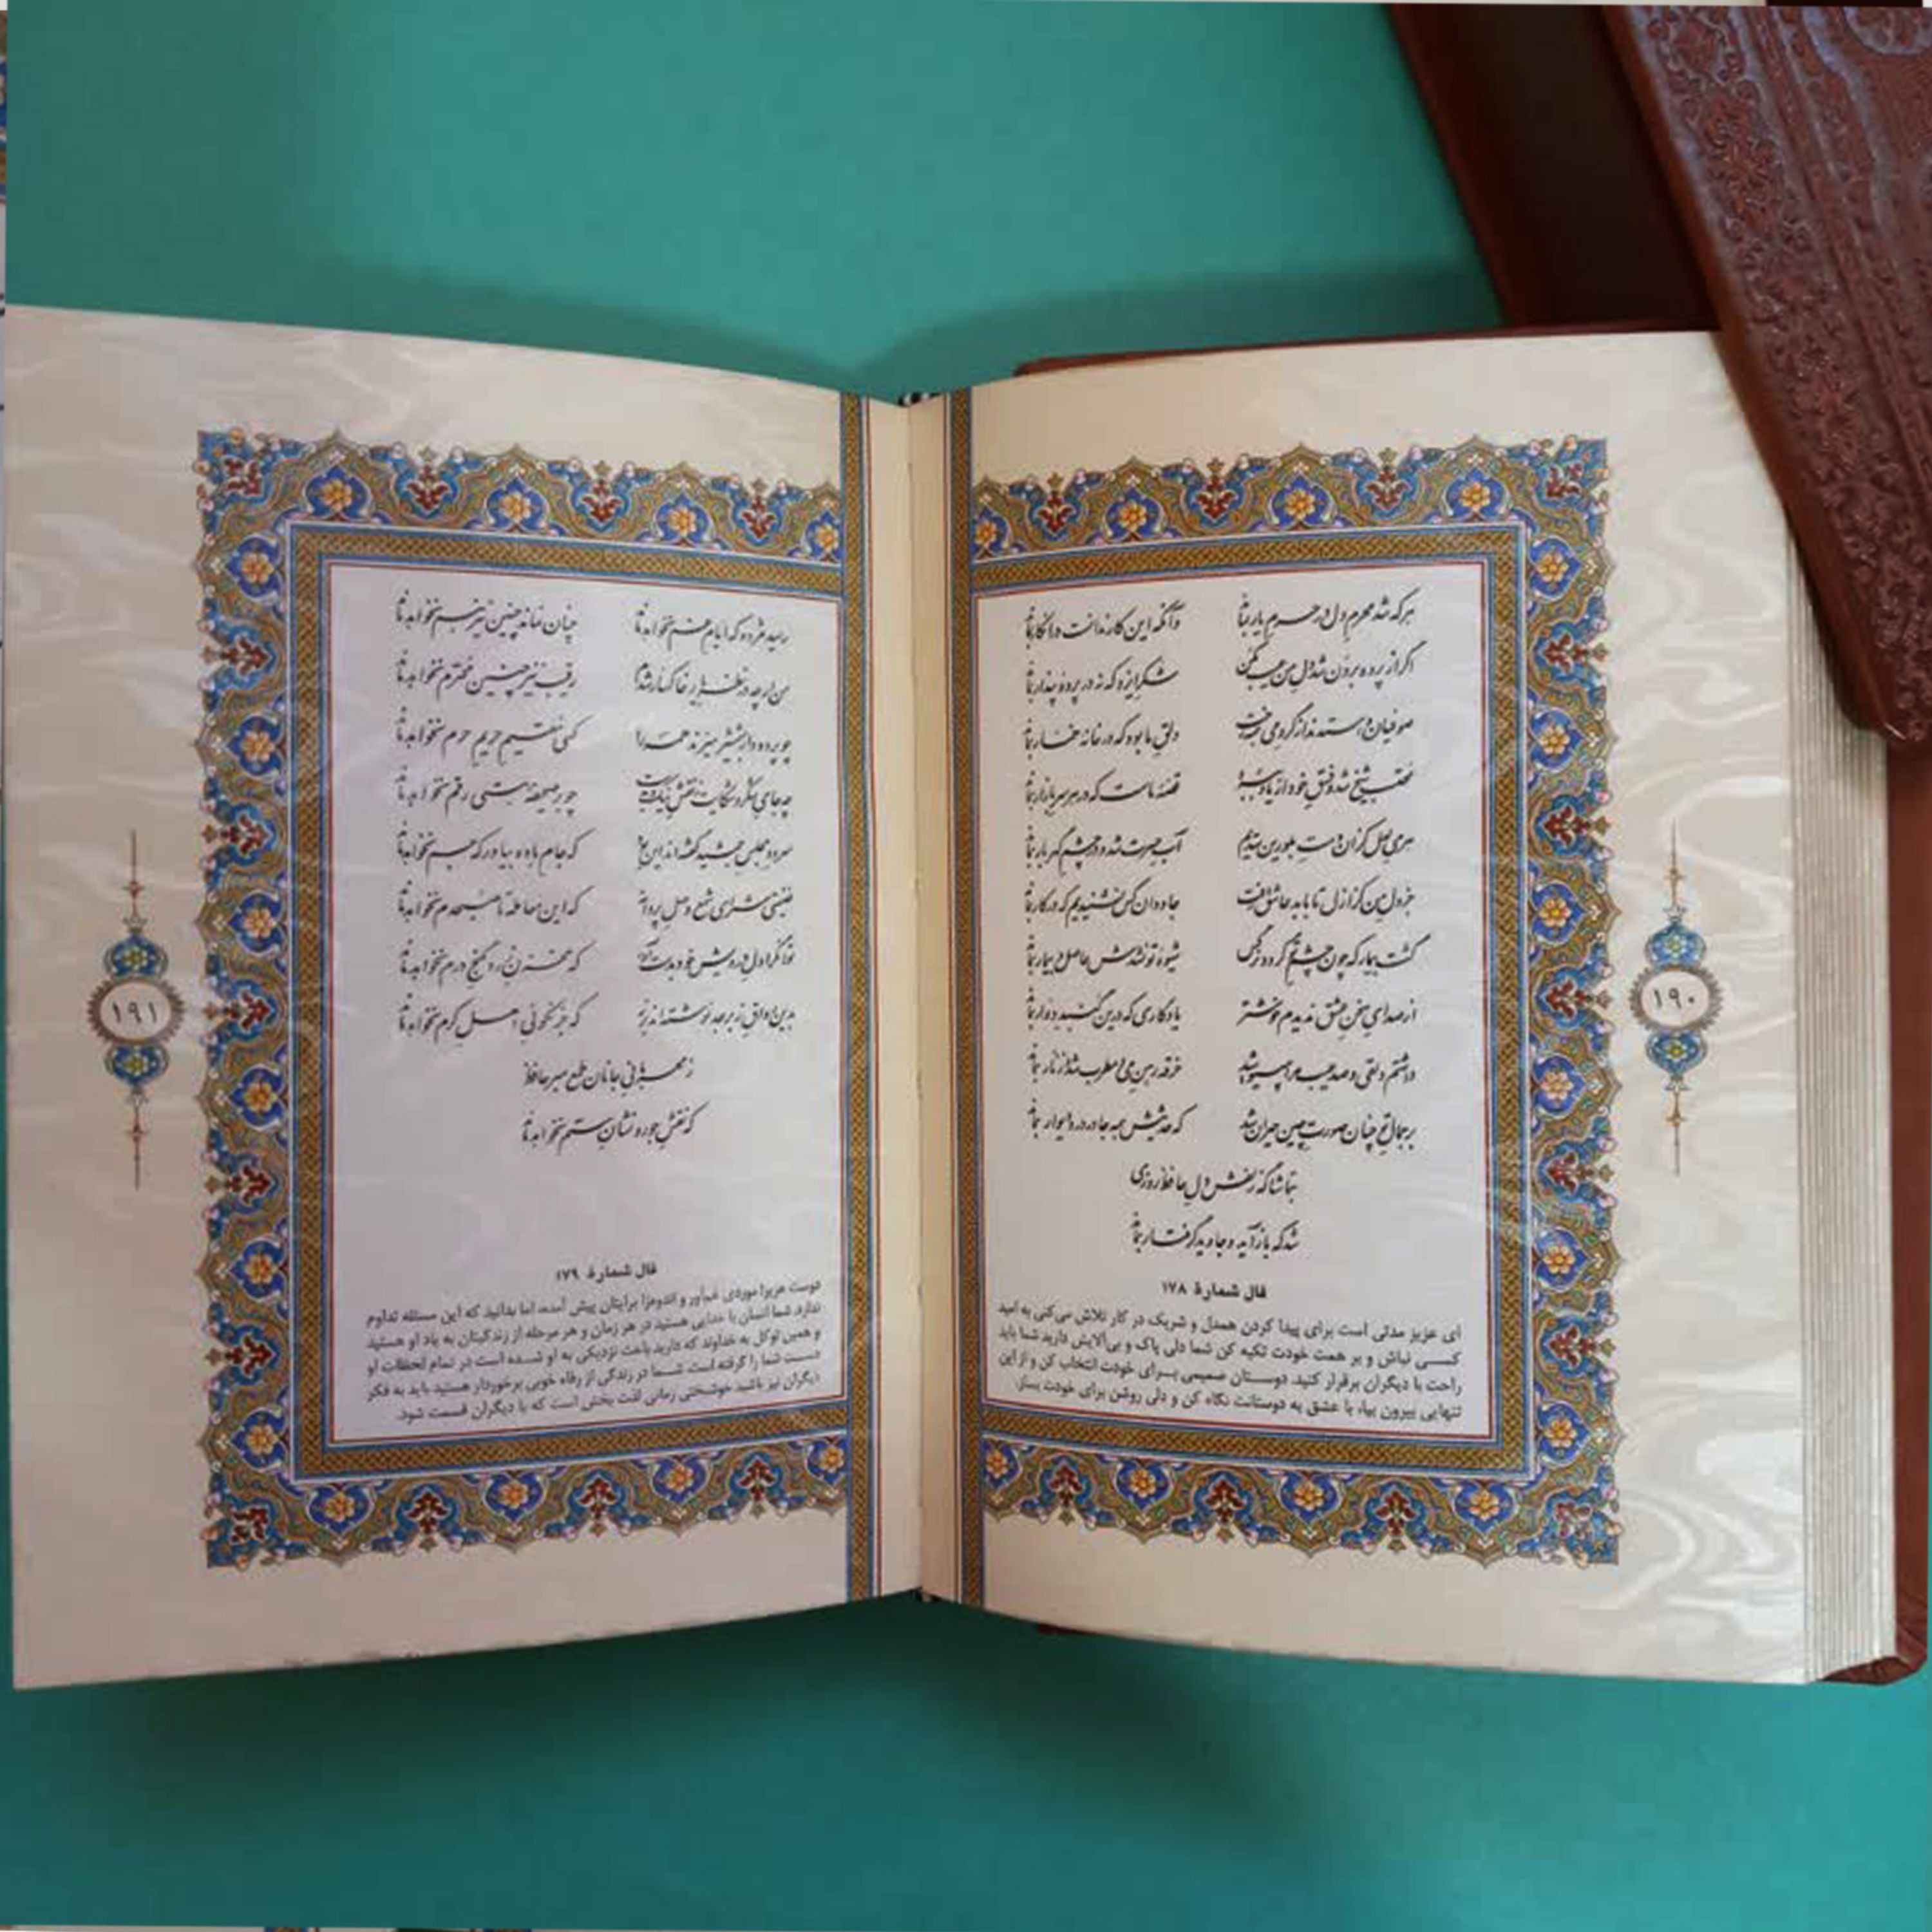 هر که شد محرم دل در حرم یار بماند وآنکه این کار ندانست در انکار بماند
اگر از پرده برون شد دل من عیب مکن شکر ایزد که نه در پردهٔ پندار بماند
صوفیان واستدند از گرو می همه رخت دلق ما بود که در خانهٔ خمار بماند
محتسب شیخ شد و فسق خود از یاد ببرد قصهٔ ماست که در هر سر بازار بماند
هر می لعل کز آن دست بلورین ستدیم آب حسرت شد و در چشم گهربار بماند
جز دل من کز ازل تا به ابد عاشق رفت جاودان کس نشنیدیم که در کار بماند
گشت بیمار که چون چشم تو گردد نرگس شیوهٔ تو نشدش حاصل و بیمار بماند
از صدای سخن عشق ندیدم خوشتر یادگاری که درین گنبد دوار بماند
داشتم دلقی و صد عیب مرا می‌پوشید خرقه رهن می و مطرب شد و زنار بماند
بر جمال تو چنان صورت چین حیران شد که حدیثش همه جا در در و دیوار بماند
به تماشاگه زلفش دل حافظ روزی
شد که باز آید و جاوید گرفتار بماند
فال شمارهٔ ۱۷۸
ای عزیز مدتی است برای پیدا کردن همدل و شریک در کار تلاش می‌کنی به امید
کسی نباش و بر همت خودت تکیه کن شما دلی پاک و بی‌آلایش دارید شما باید
راحت با دیگران برقرار کنید. دوستان صمیمی برای خودت انتخاب کن و از این
تنهایی بیرون بیا، با عشق به دوستانت نگاه کن و دلی روشن برای خودت بساز.
۱۹۰
رسید مژده که ایام غم نخواهد ماند چنان نماند چنین نیز هم نخواهد ماند
من ار چه در نظر یار خاکسار شدم رقیب نیز چنین محترم نخواهد ماند
چو پرده‌دار به شمشیر میزند همه را کسی مقیم حریم حرم نخواهد ماند
چه جای شکر و شکایت ز نقش نیک و بدست چو بر صحیفهٔ هستی رقم نخواهد ماند
سرود مجلس جمشید گفته‌اند این بود که جام باده بیاور که جم نخواهد ماند
غنیمتی شمر ای شمع وصل پروانه که این معامله تا صبحدم نخواهد ماند
توانگرا دل درویش خود بدست آور که مخزن زر و گنج درم نخواهد ماند
بدین رواق زبرجد نوشته‌اند بزر که جز نکوئی اهل کرم نخواهد ماند
ز مهربانی جانان طمع مبر حافظ
که نقش جور و نشان ستم نخواهد ماند
فال شمارهٔ ۱۷۹
دوست عزیز! موردی غم‌آور و اندوه‌زا برایتان پیش آمده، اما بدانید که این مسئله تداوم
ندارد. شما انسان با خدایی هستید در هر زمان و هر مرحله از زندگیتان به یاد او هستید
و همین توکل به خداوند که دارید باعث نزدیکی به او شده است در تمام لحظات او
دست شما را گرفته است. شما در زندگی از رفاه خوبی برخوردار هستید باید به فکر
دیگران نیز باشید خوشبختی زمانی لذت بخش است که با دیگران قسمت شود.
۱۹۱